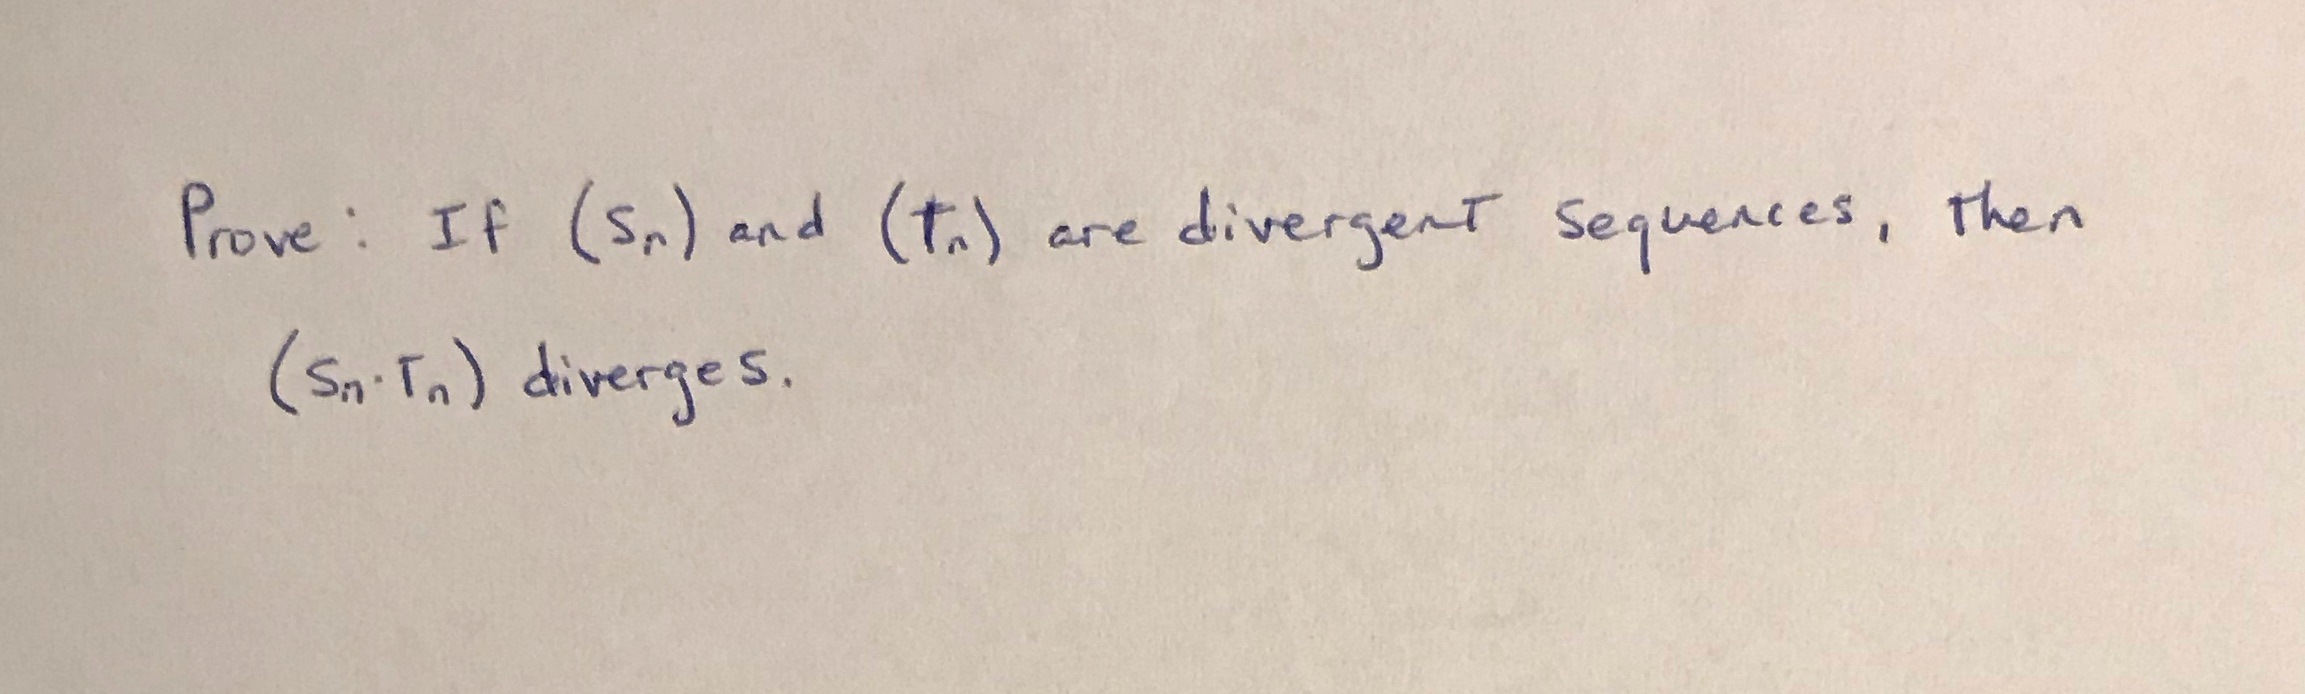 Prove: If (Sn) and (tn) are divergent sequences, then
(Sn·Tn) diverges.